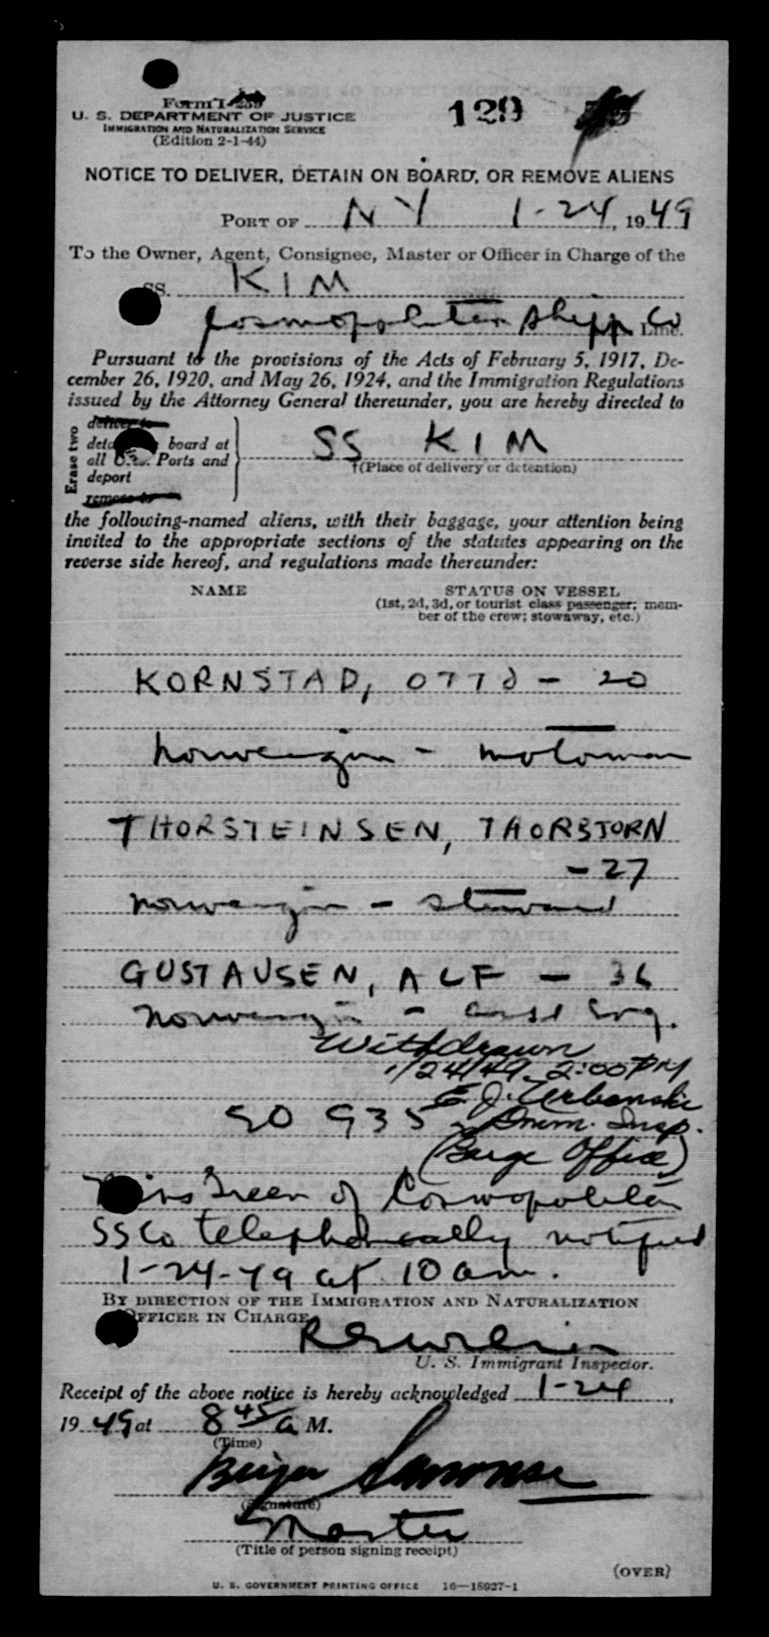 Form I-259
U. S. DEPARTMENT OF JUSTICE
IMMIGRATION AND NATURALIZATION SERVICE
(Edition 2-1-44)
129
NOTICE TO DELIVER, DETAIN ON BOARD, OR REMOVE ALIENS
PORT OF NY 1-24, 1949
To the Owner, Agent, Consignee, Master or Officer in Charge of the
SS. KIM
Cosmopolitan Shipp Co Line.
Pursuant to the provisions of the Acts of February 5, 1917, De-
cember 26, 1920, and May 26, 1924, and the Immigration Regulations
issued by the Attorney General thereunder, you are hereby directed to
Erase two
deliver to
board at
all U.S. Ports and
deport
remove to
SS KIM
(Place of delivery or detention)
the following-named aliens, with their baggage, your attention being
invited to the appropriate sections of the statutes appearing on the
reverse side hereof, and regulations made thereunder:
NAME STATUS ON VESSEL
(1st, 2d, 3d, or tourist class passenger; mem-
ber of the crew; stowaway, etc.)
KORNSTAD, OTTO - 20
Norwegian - motorman
THORSTEINSEN, THORBJORN
- 27
Norwegian - steward
GUSTAVSEN, ALF - 36
Norwegian - Eng.
Withdrawn
1/24/49 2:00 PM
E. J. Urbanski
90 935 Imm. Insp.
(Barge Office)
Miss Green of Cosmopolitan
SS Co telephonically notified
1-24-49 at 10 am.
BY DIRECTION OF THE IMMIGRATION AND NATURALIZATION
OFFICER IN CHARGE
U. S. Immigrant Inspector.
Receipt of the above notice is hereby acknowledged 1-24,
1949 at 8 45 a M.
(Time)
Birger
(Signature)
Master
(Title of person signing receipt)
(OVER)
U. S. GOVERNMENT PRINTING OFFICE 16—18927-1